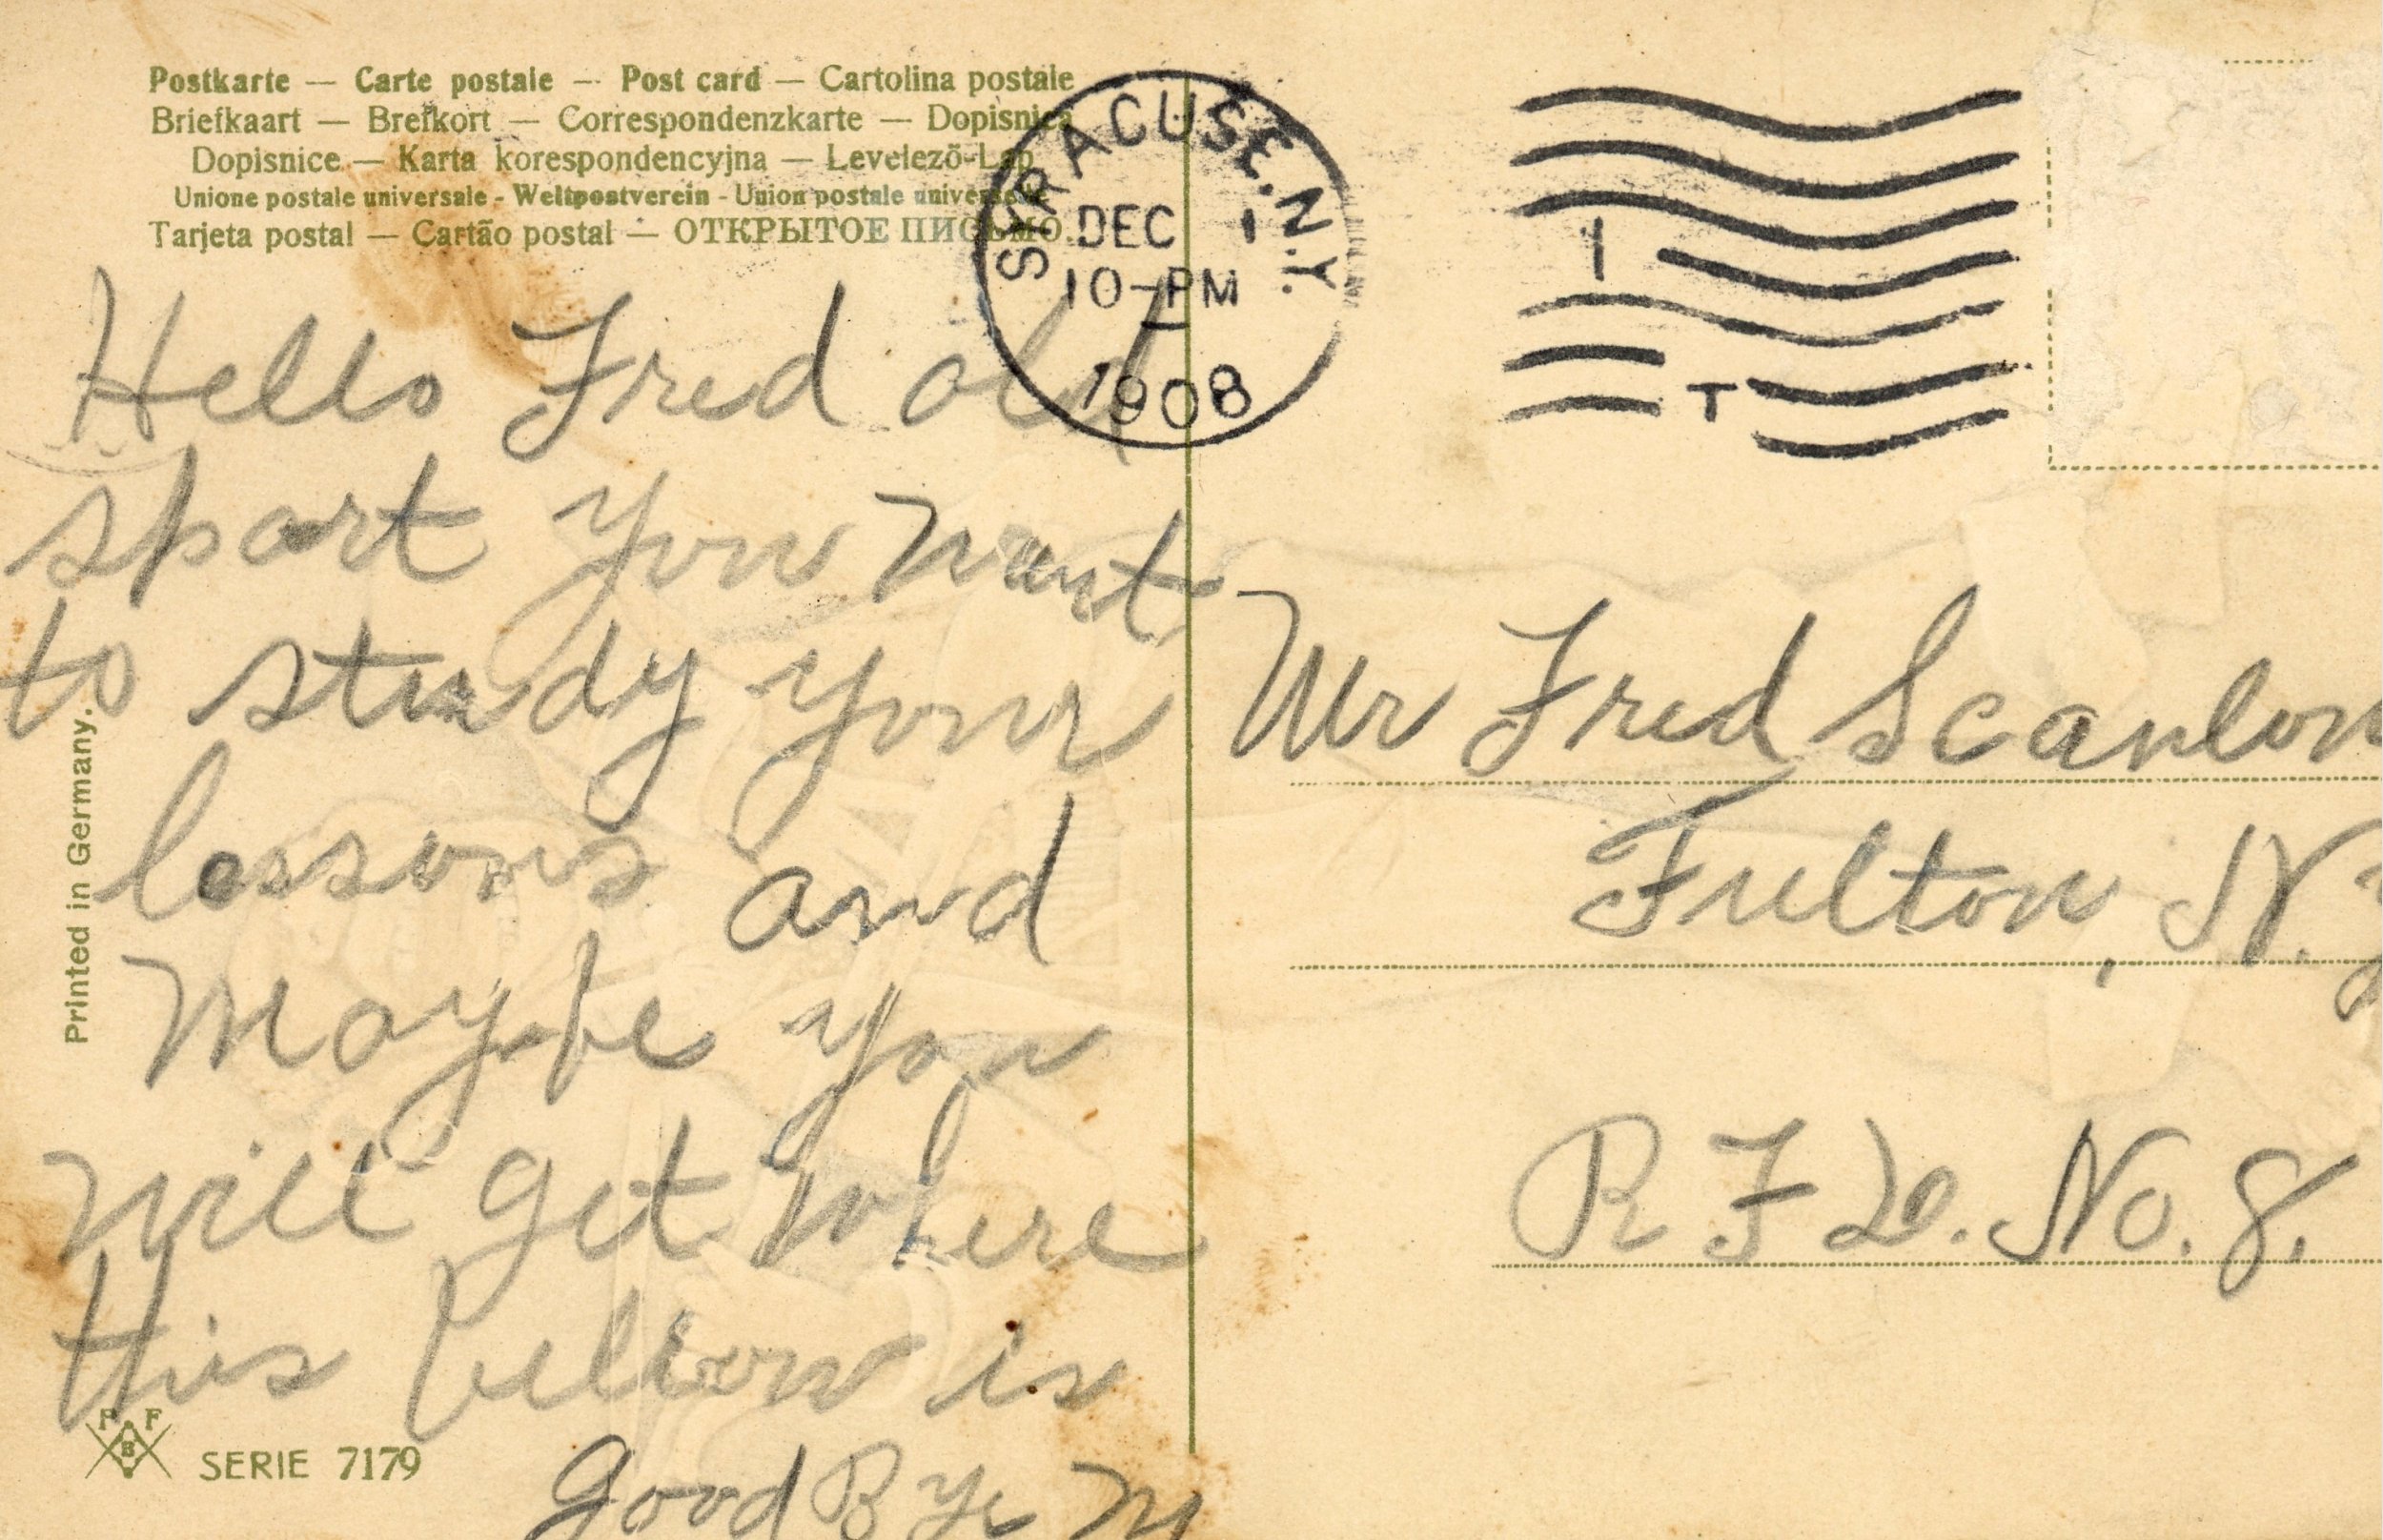 Postkarte — Carte postale — Post card — Cartolina postale
Briefkaart — Brefkort — Correspondenzkarte — Dopisnica
Dopisnice — Karta korespondencyjna — Levelezõ-Lap
Unione postale universale - Weltpostverein - Union postale universelle
Tarjeta postal — Cartão postal — ОТКРЫТОЕ ПИСЬМО.
SYRACUSE, N.Y.
DEC 1
10-PM
1908
1
T
Hello Fred old
sport you want
to study your
lessons and
Maybe you
will get where
this fellow is
Good Bye M
Mr Fred Scanlon
Fulton, N.Y
R F D. No. 8.
Printed in Germany.
P F
B
SERIE 7179